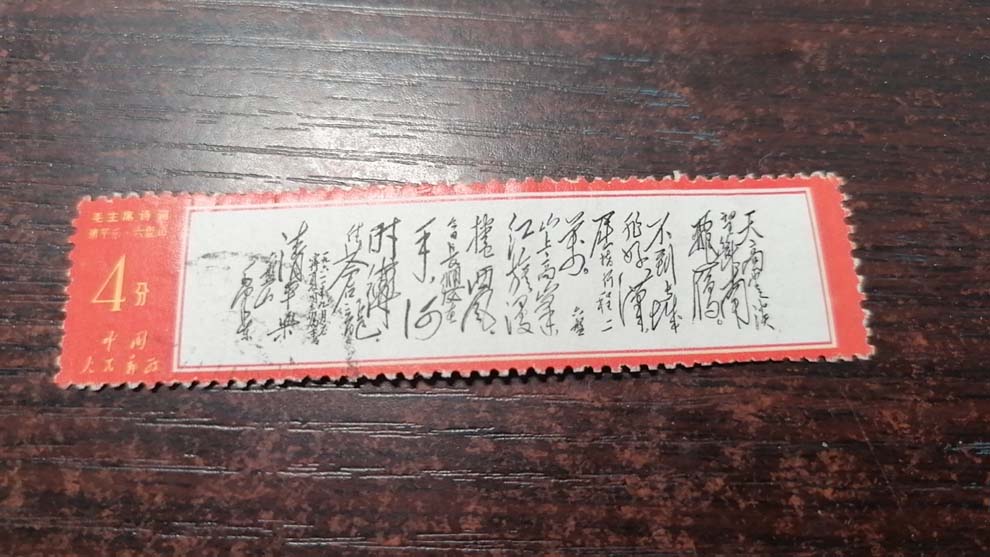 毛主席诗词
清平乐·六盘山
4分
中国
人民邮政
天高云淡
望断南
飛雁。
不到长城
非好漢,
屈指行程二
万。六盘
山上高峯
红旗漫
捲西风。
今日长缨在
手,何
时缚
住苍龙
清平乐
六盘山
毛泽东